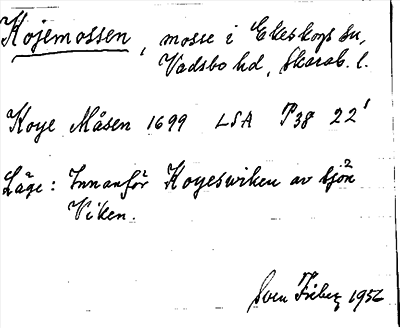 Kojemossen, mosse i Ekeskogs sn,
Vadsbo hd, Skarab. l.
Koye Måsen 1699 LSA P38 22'
Läge: Innanför Koyeswiken av sjön
Viken.
Sven Friberg 1956